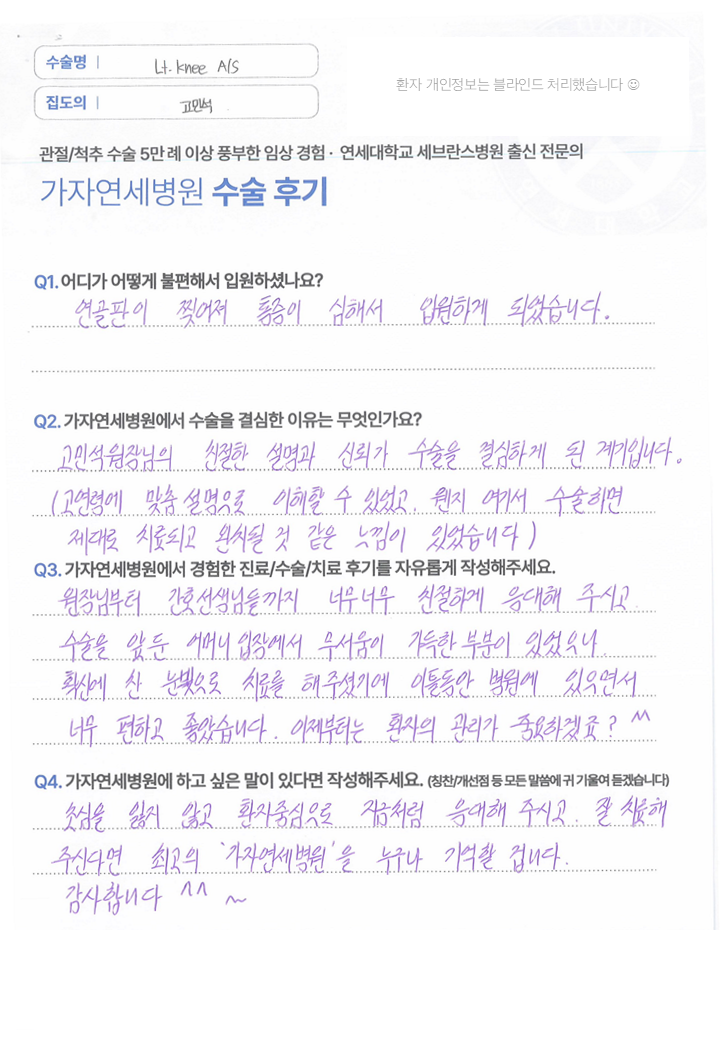 수술명 | Lt. knee A/S
환자 개인정보는 블라인드 처리했습니다 ☺
집도의 | 고민석
관절/척추 수술 5만 례 이상 풍부한 임상 경험 · 연세대학교 세브란스병원 출신 전문의
가자연세병원 수술 후기
Q1. 어디가 어떻게 불편해서 입원하셨나요?
연골판이 찢어져 통증이 심해서 입원하게 되었습니다.
Q2. 가자연세병원에서 수술을 결심한 이유는 무엇인가요?
고민석원장님의 친절한 설명과 신뢰가 수술을 결심하게 된 계기입니다.
(고연령에 맞춤 설명으로 이해할 수 있었고. 왠지 여기서 수술하면
제대로 치료되고 완치될 것 같은 느낌이 있었습니다)
Q3. 가자연세병원에서 경험한 진료/수술/치료 후기를 자유롭게 작성해주세요.
원장님부터 간호선생님들까지 너무너무 친절하게 응대해 주시고.
수술을 앞둔 어머니 입장에서 무서움이 가득한 부분이 있었으나.
확신에 찬 눈빛으로 치료를 해주셨기에 이틀동안 병원에 있으면서
너무 편하고 좋았습니다. 이제부터는 환자의 관리가 중요하겠죠? ^^
Q4. 가자연세병원에 하고 싶은 말이 있다면 작성해주세요. (칭찬/개선점 등 모든 말씀에 귀 기울여 듣겠습니다)
초심을 잃지 않고 환자중심으로 지금처럼 응대해 주시고. 잘 치료해
주신다면 최고의 '가자연세병원'을 누구나 기억할 겁니다.
감사합니다 ^^ ~